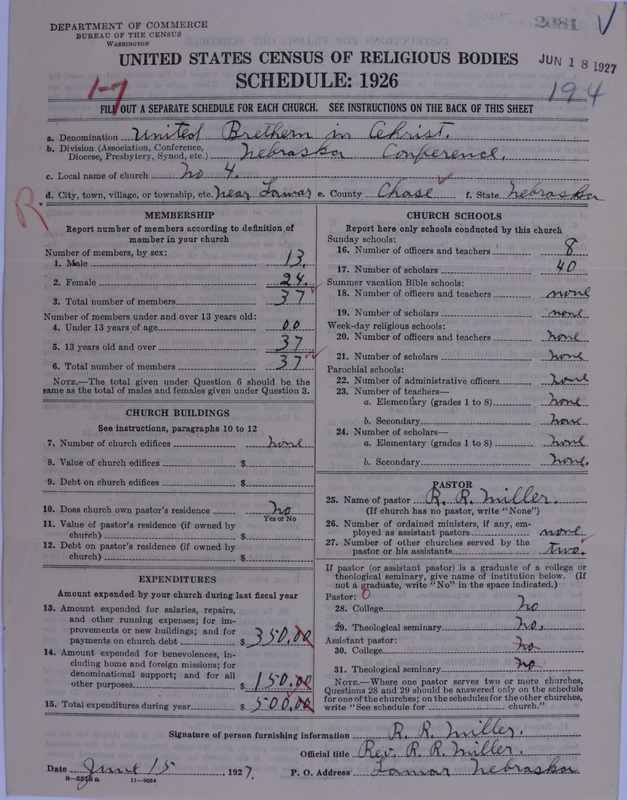 DEPARTMENT OF COMMERCE
BUREAU OF THE CENSUS
WASHINGTON
UNITED STATES CENSUS OF RELIGIOUS BODIES
SCHEDULE: 1926
JUN 18 1927
1-7
194
FILL OUT A SEPARATE SCHEDULE FOR EACH CHURCH. SEE INSTRUCTIONS ON THE BACK OF THIS SHEET
a. Denomination United Brethern in Christ.
b. Division (Association, Conference, Diocese, Presbytery, Synod, etc.) Nebraska Conference.
c. Local name of church No 4.
d. City, town, village, or township, etc. near Lamar e. County Chase f. State Nebraska
R
MEMBERSHIP
Report number of members according to definition of
member in your church
Number of members, by sex:
1. Male 13.
2. Female 24.
3. Total number of members 37
Number of members under and over 13 years old:
4. Under 13 years of age 00
5. 13 years old and over 37
6. Total number of members 37
NOTE.—The total given under Question 6 should be
same as the total of males and females given under Question 3.
CHURCH BUILDINGS
See instructions, paragraphs 10 to 12
7. Number of church edifices none
8. Value of church edifices $
9. Debt on church edifices $
10. Does church own pastor's residence no
Yes or No
11. Value of pastor's residence (if owned by
church) $
12. Debt on pastor's residence (if owned by
church) $
EXPENDITURES
Amount expended by your church during last fiscal year
13. Amount expended for salaries, repairs,
and other running expenses; for im-
provements or new buildings; and for
payments on church debt $ 350.00
14. Amount expended for benevolences, in-
cluding home and foreign missions; for
denominational support; and for all
other purposes $ 150.00
15. Total expenditures during year $ 500.00
CHURCH SCHOOLS
Report here only schools conducted by this church
Sunday schools:
16. Number of officers and teachers 8
17. Number of scholars 40
Summer vacation Bible schools:
18. Number of officers and teachers none
19. Number of scholars none
Week-day religious schools:
20. Number of officers and teachers none
21. Number of scholars none
Parochial schools:
22. Number of administrative officers none
23. Number of teachers—
a. Elementary (grades 1 to 8) none
b. Secondary none
24. Number of scholars—
a. Elementary (grades 1 to 8) none
b. Secondary none.
PASTOR
25. Name of pastor R. R. Miller.
(If church has no pastor, write "None")
26. Number of ordained ministers, if any, em-
ployed as assistant pastors none
27. Number of other churches served by the
pastor or his assistants two.
If pastor (or assistant pastor) is a graduate of a college or
theological seminary, give name of institution below. (If
not a graduate, write "No" in the space indicated.)
Pastor: 0
28. College no
29. Theological seminary no.
Assistant pastor:
30. College no
31. Theological seminary no
NOTE.—Where one pastor serves two or more churches,
Questions 28 and 29 should be answered only on the schedule
for one of the churches; on the schedules for the other churches,
write "See schedule for church."
Signature of person furnishing information R. R. Miller.
Official title Rev. R. R. Miller.
Date June 15, 1927. P. O. Address Lamar Nebraska
11—9054